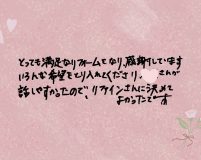 とっても満足なリフォームとなり、感謝しています
いろんな希望をとり入れてくださり、さんが
話しやすかったので、リファインさんに決めて
よかったです